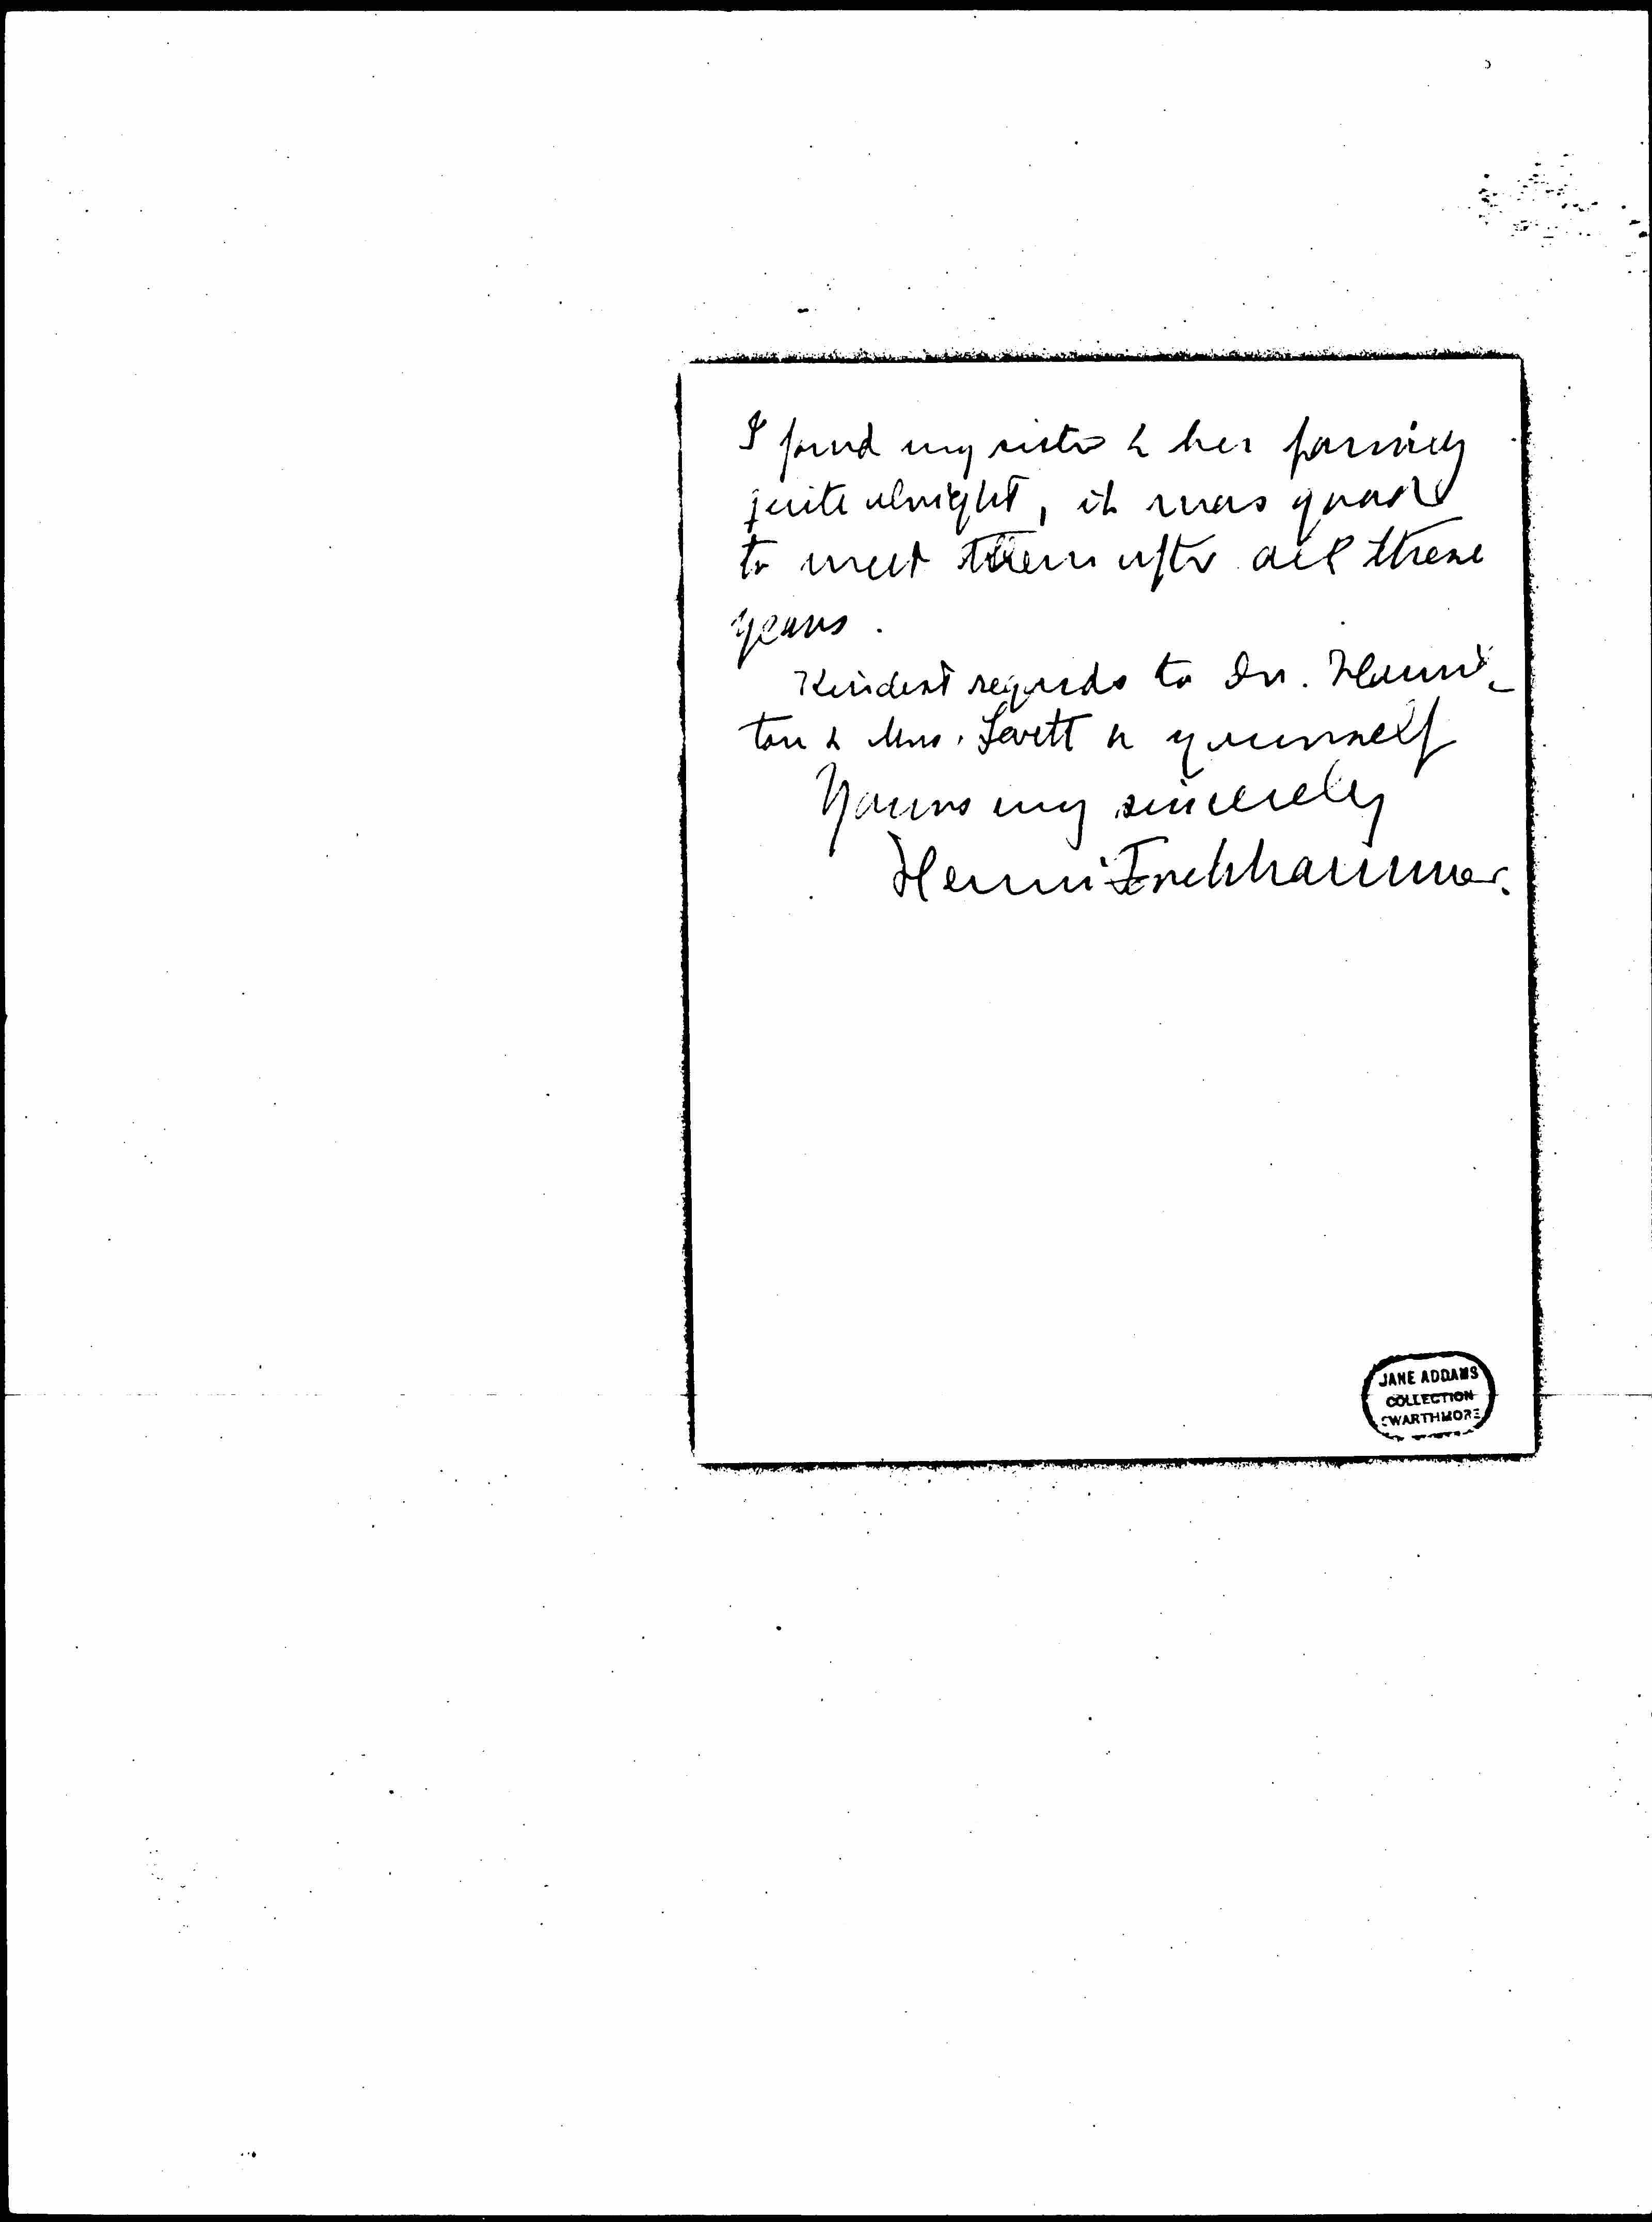 I found my sister & her family
quite alright, it was good
to meet them after all these
years.
Kindest regards to Dr. Hamil-
ton & Mrs. Lovett & yourself
Yours very sincerely
Henni Forchhammer.
JANE ADDAMS
COLLECTION
SWARTHMORE